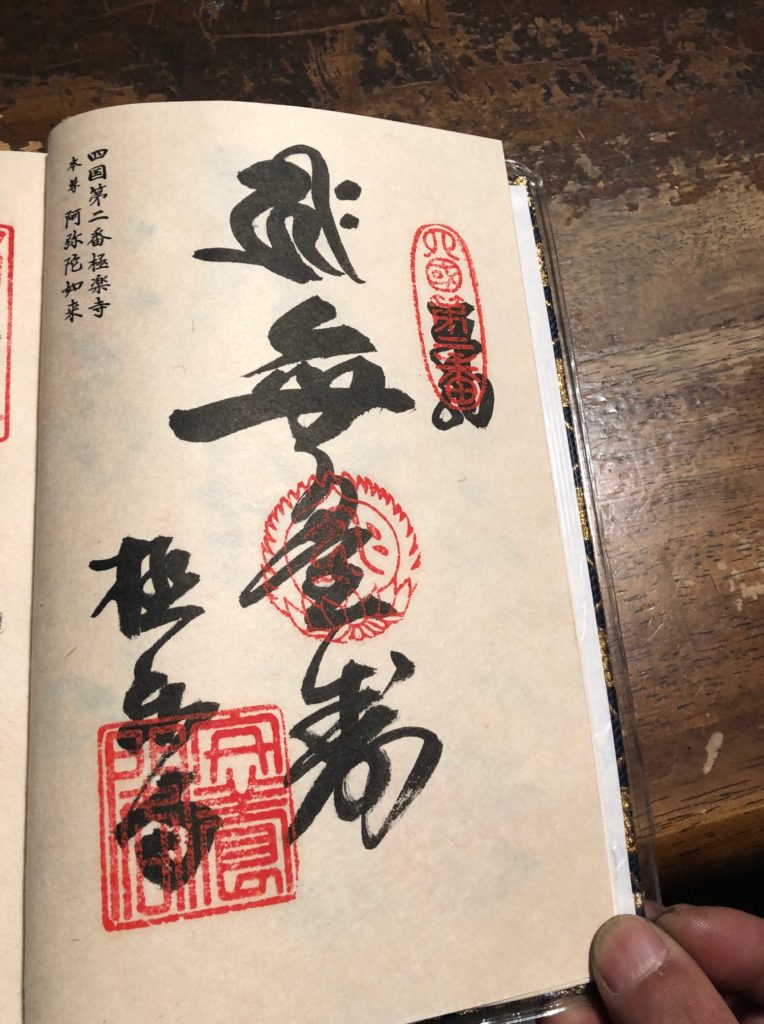 四國第二番
無量寿
極楽寺
四国第二番極楽寺
本尊 阿弥陀如来